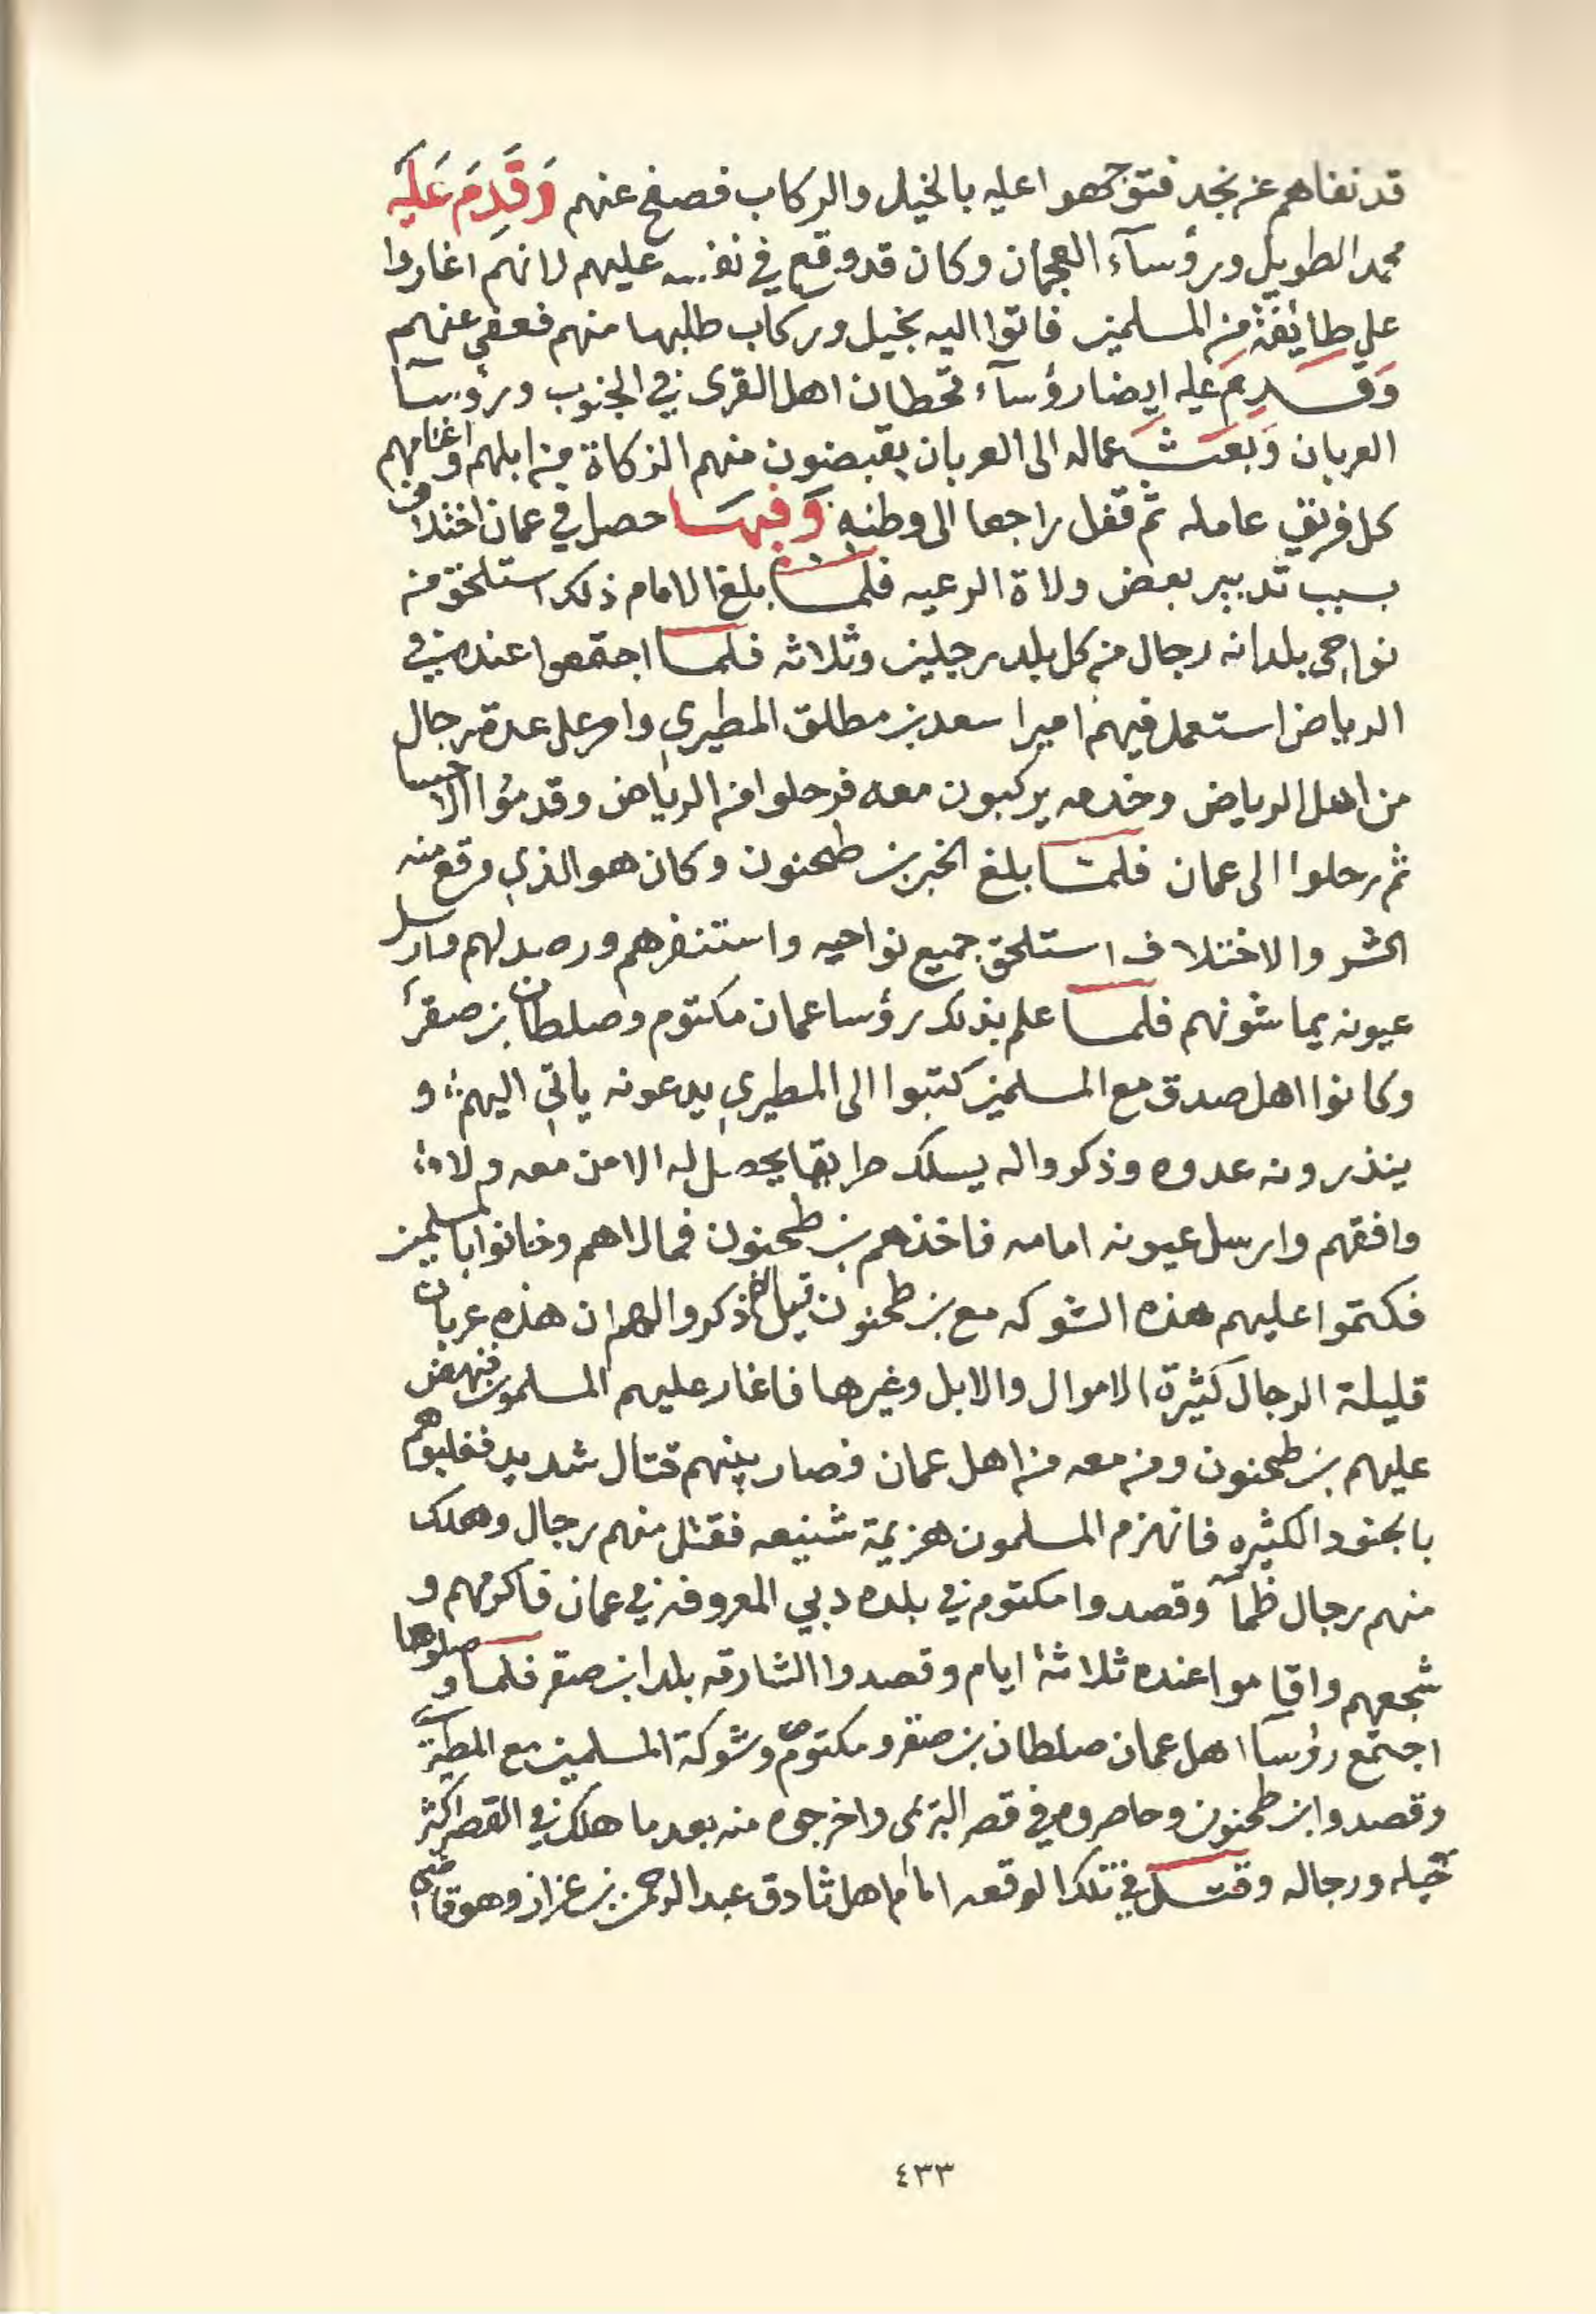 قد نفاهم عن نجد فتوجهوا عليه بالخيل والركاب فصفح عنهم وَقَدِمَ عَلَيه
محمد الطويل ورؤسآء العجمان وكان قد وقع في نفسه عليهم لانهم اغاروا
على طايفة من المسلمين فاتوا اليه بخيل وركاب طلبها منهم فعفى عنهم
وَقَدِمَ عليه ايضا رؤسآء قحطان اهل القرى في الجنوب ورؤسآ
العربان وَبَعَثَ عماله الى العربان يقبضون منهم الزكاة من ابلهم واغنامهم
كل فريق عامله ثم قفل راجعا الى وطنه وَفيهَا حصل في عمان اختلاف
بسبب تدبير بعض ولاة الرعيه فلما بلغ الامام ذلك استلحق من
نواحي بلدانه رجال من كل بلد رجلين وثلاثه فلما اجتمعوا عنده في
الرياض استعمل فيهم اميرا سعد بن مطلق المطيري وامر على عدة رجال
من اهل الرياض وخدمه يركبون معه فرحلوا من الرياض وقدموا الاحسا
ثم رحلوا الى عمان فلما بلغ الخبر بن طحنون وكان هو الذي وقع منه
الشر والاختلاف استلحق جميع نواحيه واستنفرهم ورصد لهم وارسل
عيونه يماشونهم فلما علم بذلك رؤسا عمان مكتوم وصلطان بن صقر
وكانوا اهل صدق مع المسلمين كتبوا الى المطيري يدعونه ياتي اليهم و
ينذرونه عدوه وذكروا له يسلك طريقا يحصل له الامن معه ولا
وافقهم وارسل عيونه امامه فاخذهم بن طحنون فمالاهم وخانوا بالمسلمين
فكتموا عليهم هذه الشوكه مع بن طحنون ذكروا لهم ان هذه عربان
قليلة الرجال كثيرة الاموال والابل وغيرها فاغار عليهم المسلمون فنهض
عليهم بن طحنون ومن معه من اهل عمان فصار بينهم قتال شديد فغلبوهم
بالجنود الكثيره فانهزم المسلمون هزيمة شنيعه فقتل منهم رجال وهلك
منهم رجال ظمآ وقصدوا مكتوم في بلده دبي المعروفه في عمان فاكرمهم و
شجعهم واقاموا عنده ثلاثة ايام وقصدوا الشارقه بلد ابن صقر فلما وصلوها
اجتمع رؤسآ اهل عمان صلطان بن صقر ومكتوم وشوكة المسلمين مع المطيري
وقصدوا ابن طحنون وحاصروه في قصر البريمي واخرجوه منه بعد ما هلك في القصر اكثر
خيله ورجاله وقتل في تلك الوقعه امام اهل ثادق عبد الرحمن بن عزاز وهو قاضي
٤٣٣